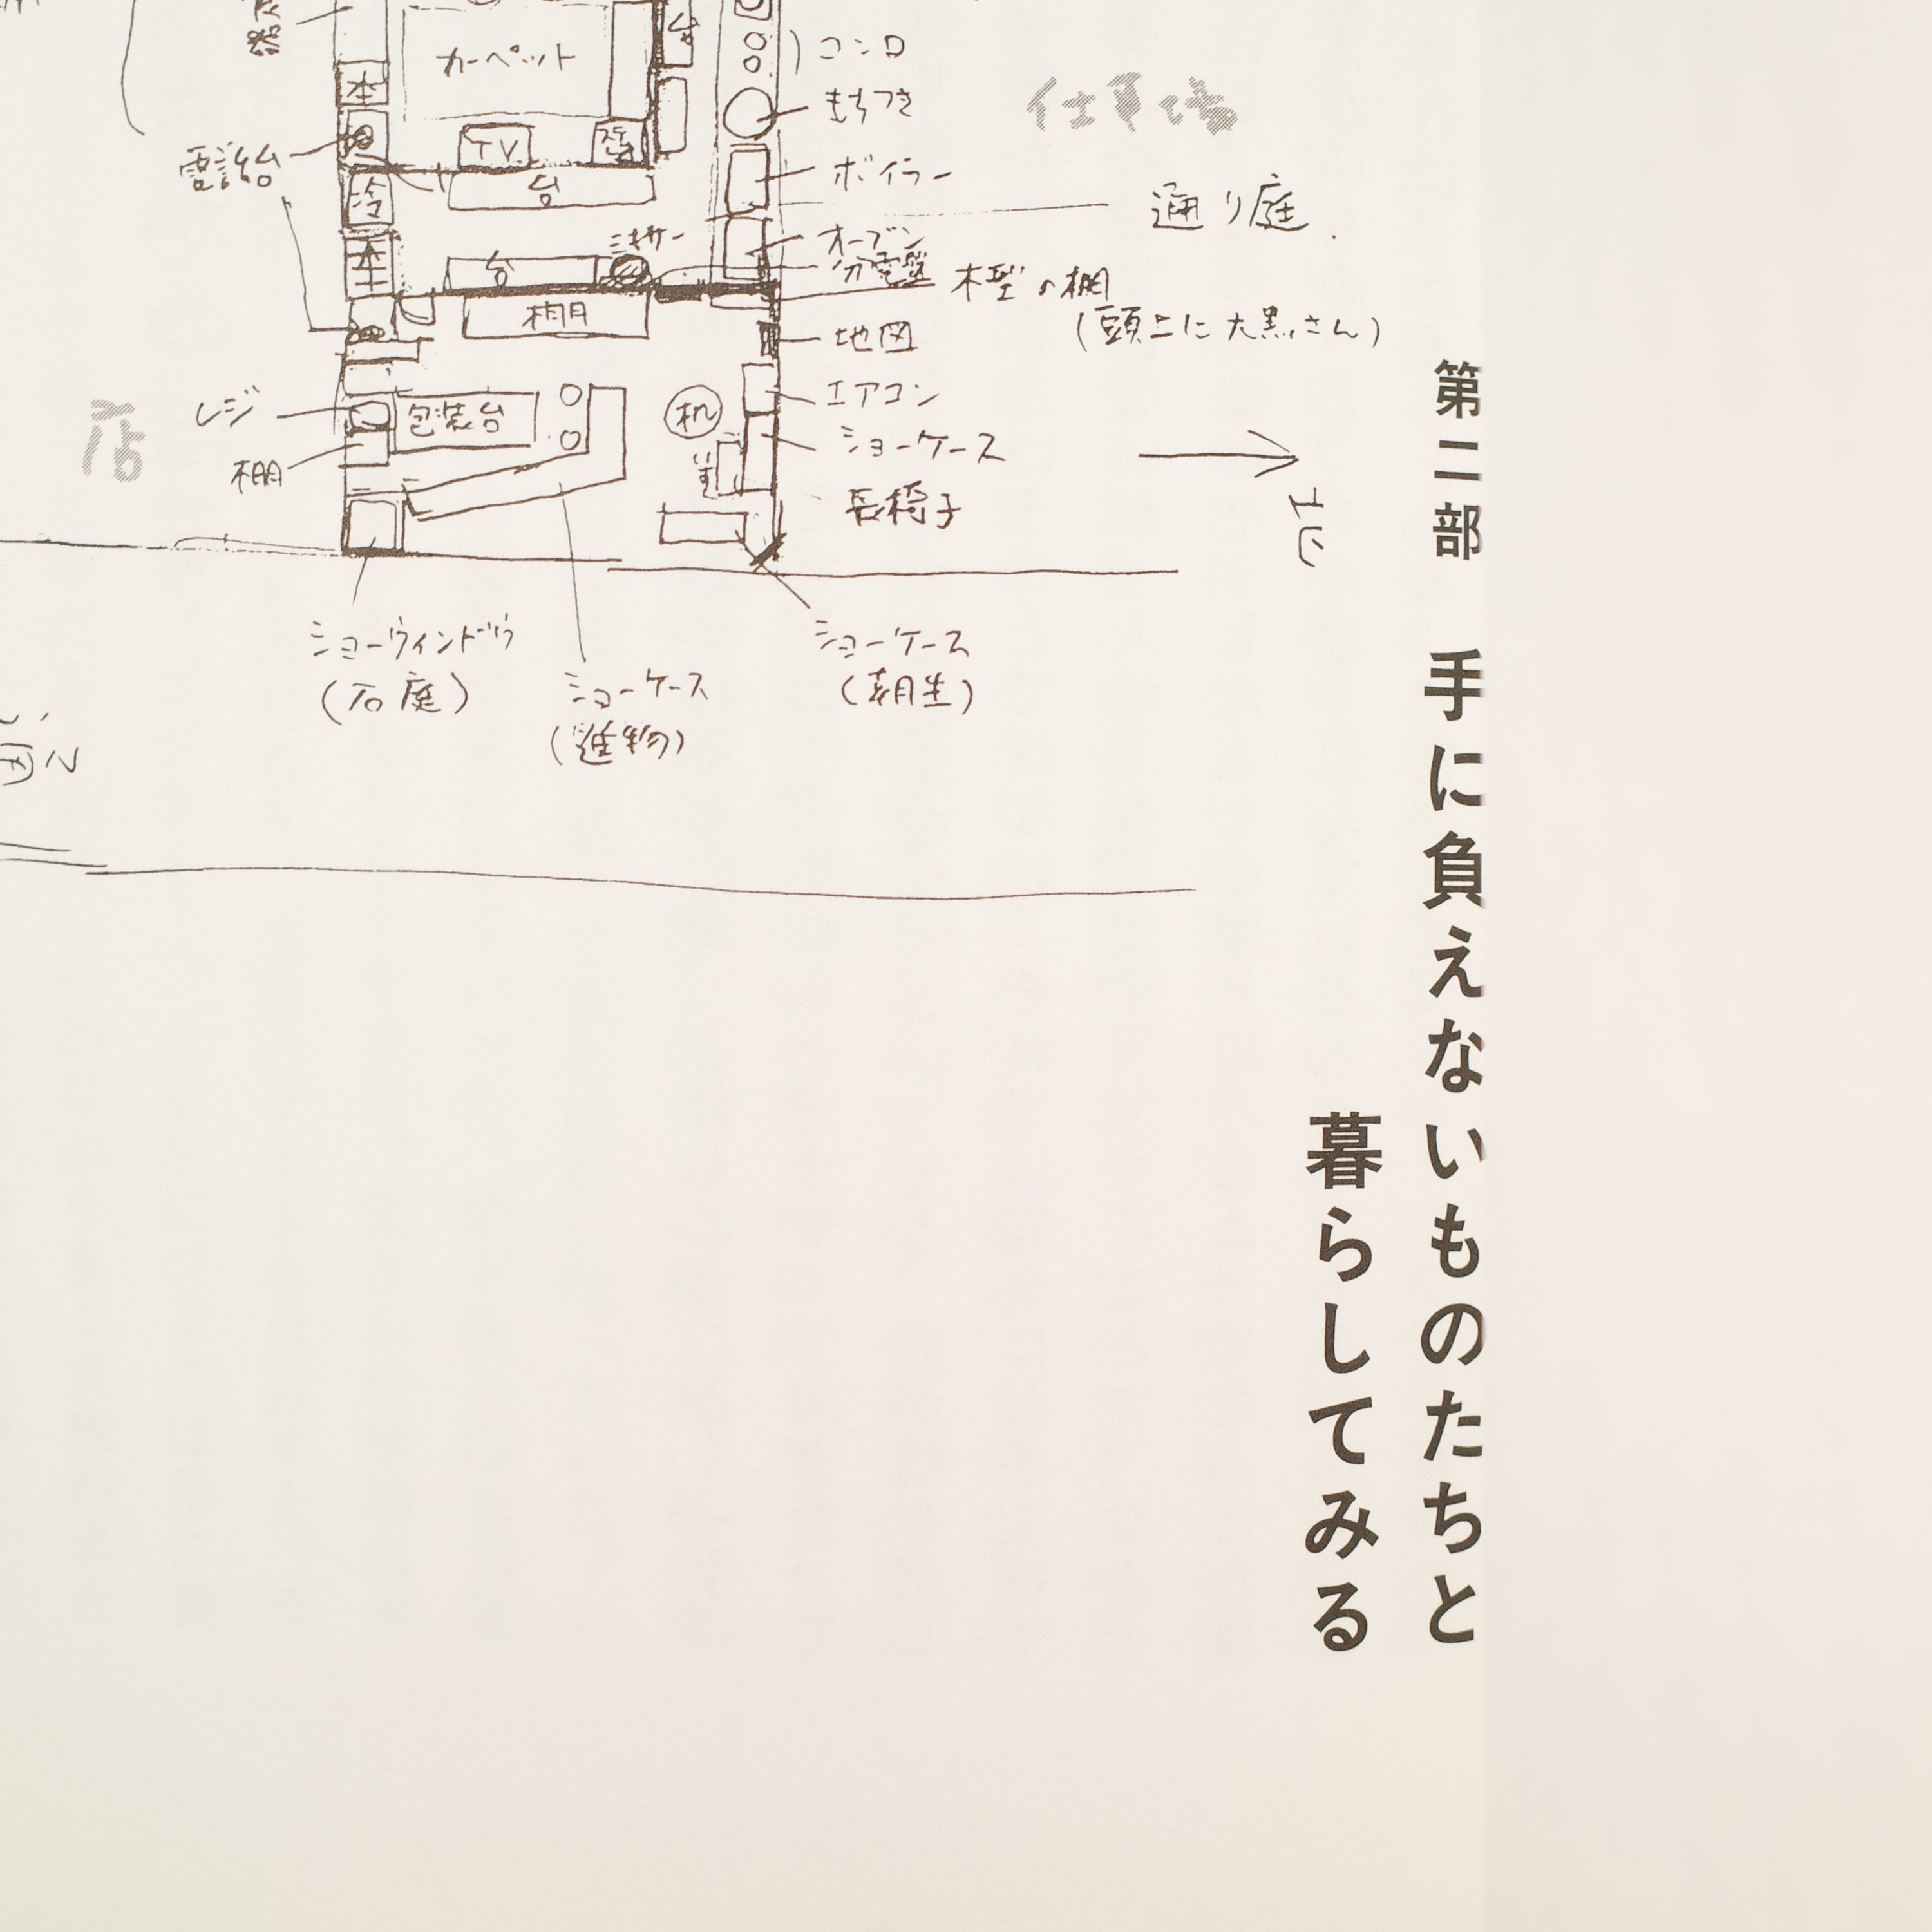 第二部 手に負えないものたちと
暮らしてみる
カーペット
台
コンロ
もちつき
仕事場
本
電話台
TV
台
ボイラー
通り庭
冷
オーブン
分電盤
木型の棚
(頭上に大黒さん)
本
台
ミキサー
棚
地図
エアコン
レジ
包装台
机
ショーケース
店
棚
長椅子
北
ショーウィンドウ
(石庭)
ショーケース
(進物)
ショーケース
(朝生)
通り